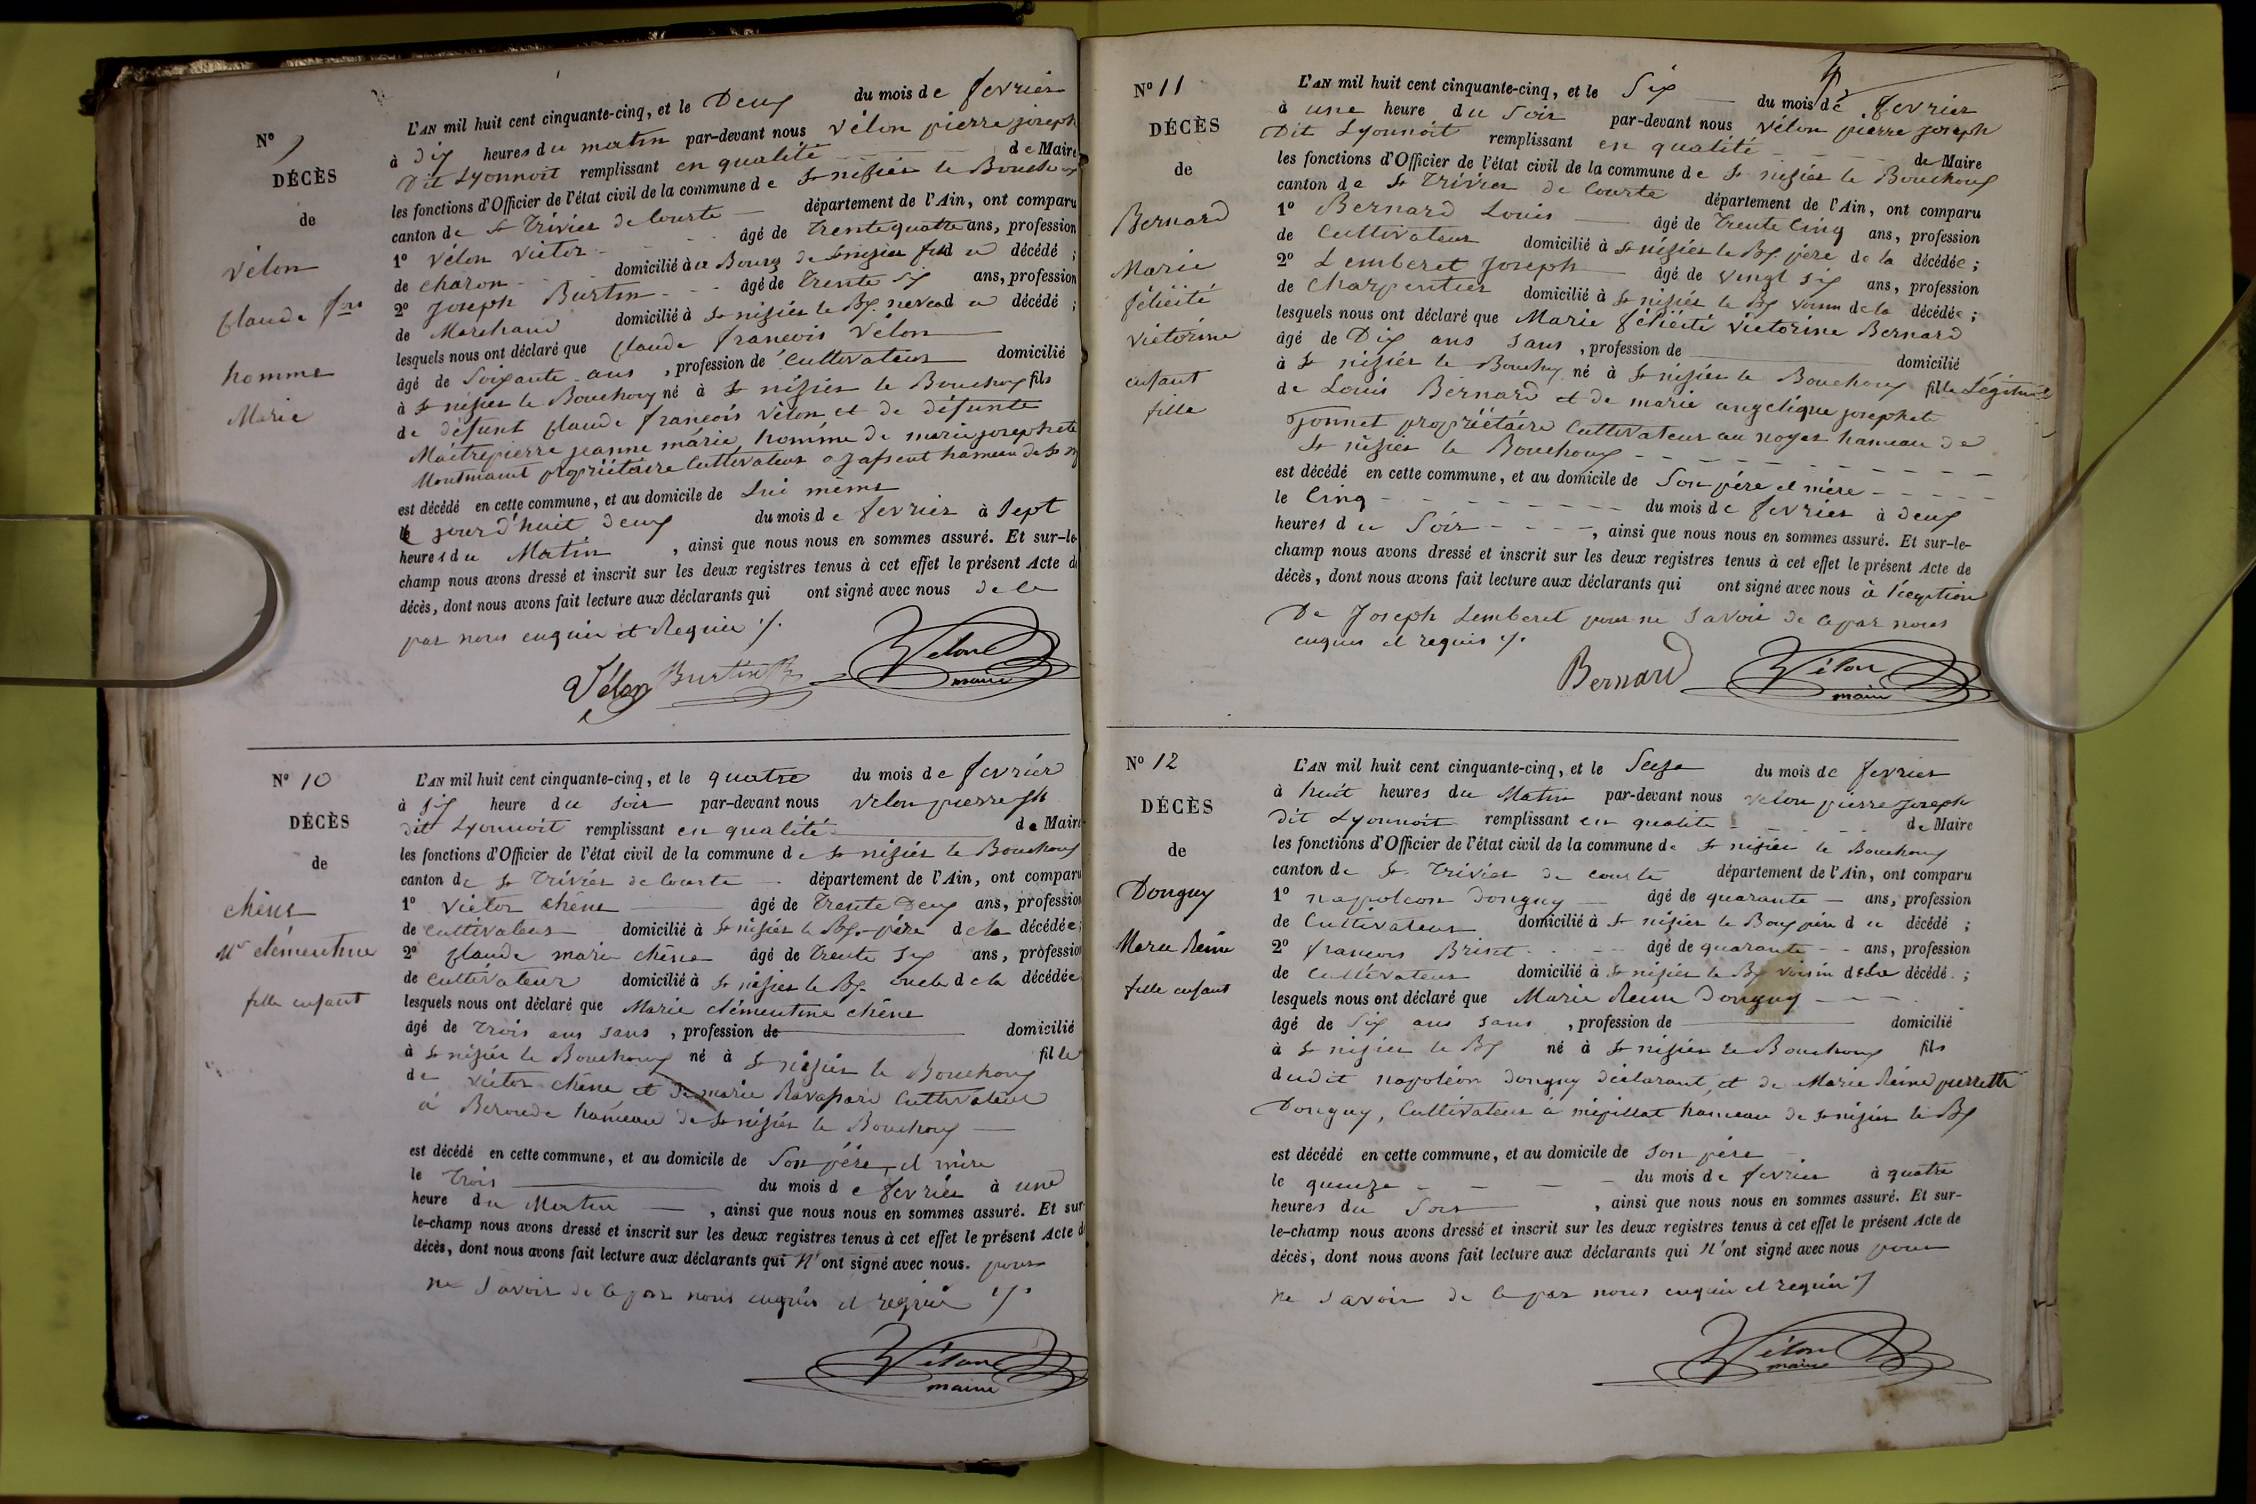 N° 9
DÉCÈS
de
Vélon
Claude fois
homme
Marié
L'AN mil huit cent cinquante-cinq, et le Deux du mois de fevrier
à Dix heures du matin par-devant nous Vélon pierre joseph
Dit Lyonnoit remplissant en qualité de Maire
les fonctions d'Officier de l'état civil de la commune de St nizier le Bouchoux
canton de St Trivier de Courte département de l'Ain, ont comparu
1° Vélon Victor âgé de Trente quatre ans, profession
de charon domicilié à le Bourg de St nizier fils du décédé ;
2° Joseph Burtin âgé de Trente Six ans, profession
de Marchand domicilié à St nizier le Bx. neveu du décédé ;
lesquels nous ont déclaré que Claude francois Vélon
âgé de Soixante ans , profession de Cultivateur domicilié
à St nizier le Bouchoux né à St nizier le Bouchoux fils
de défunt Claude francois Vélon et de défunte
Maitrepierre jeanne marie, homme de marie josephete
Montmaint propriétaire Cultivateur hameau de St
est décédé en cette commune, et au domicile de Lui même
le jourd'huit deux du mois de fevrier à Sept
heures du Matin , ainsi que nous nous en sommes assuré. Et sur-le-
champ nous avons dressé et inscrit sur les deux registres tenus à cet effet le présent Acte de
décès, dont nous avons fait lecture aux déclarants qui ont signé avec nous de ce
par nous enquis et Requis ./.
Vélon Burtin Vélon
maire
N° 10
DÉCÈS
de
chêne
Mie clémentine
fille enfant
L'AN mil huit cent cinquante-cinq, et le quatre du mois de fevrier
à six heure du soir par-devant nous Velon pierre jh
dit Lyonnoit remplissant en qualité de Maire
les fonctions d'Officier de l'état civil de la commune de St nizier le Bouchoux
canton de St Trivier de Courte département de l'Ain, ont comparu
1° Victor chêne âgé de Trente Deux ans, profession
de cultivateur domicilié à St nizier le Bx. père de la décédée ;
2° Claude marie chêne âgé de Trente Six ans, profession
de cultivateur domicilié à St nizier le Bx. oncle de la décédée
lesquels nous ont déclaré que Marie clémentine chêne
âgé de Trois ans sans , profession de domicilié
à St nizier le Bouchoux né à St nizier le Bouchoux fille
de Victor chêne et de marie Ravassard Cultivateur
à Beroude hameau de St nizier le Bouchoux
est décédé en cette commune, et au domicile de Son père et mère
le Trois du mois de fevrier à une
heure du Matin , ainsi que nous nous en sommes assuré. Et sur-
le-champ nous avons dressé et inscrit sur les deux registres tenus à cet effet le présent Acte de
décès, dont nous avons fait lecture aux déclarants qui N'ont signé avec nous. pour
ne Savoir de ce par nous enquis et requis ./.
Vélon
maire
N° 11
DÉCÈS
de
Bernard
Marie
félicité
Victorine
enfant
fille
L'AN mil huit cent cinquante-cinq, et le Six du mois de fevrier
à une heure du Soir par-devant nous Vélon pierre joseph
Dit Lyonnoit remplissant en qualité de Maire
les fonctions d'Officier de l'état civil de la commune de St nizier le Bouchoux
canton de St Trivier de Courte département de l'Ain, ont comparu
1° Bernard Louis âgé de Trente Cinq ans, profession
de Cultivateur domicilié à St nizier le Bx. père de la décédée ;
2° Lemberet Joseph âgé de Vingt Six ans, profession
de Charpentier domicilié à St nizier le Bx voisin de la décédée ;
lesquels nous ont déclaré que Marie félicité Victorine Bernard
âgé de Dix ans sans , profession de domicilié
à St nizier le Bouchoux né à St nizier le Bouchoux fille Légitime
de Louis Bernard et de marie angelique josephete
Jonnet propriétaire Cultivateur au noyer hameau de
St nizier le Bouchoux
est décédé en cette commune, et au domicile de Son père et mère
le Cinq du mois de fevrier à deux
heures du Soir , ainsi que nous nous en sommes assuré. Et sur-le-
champ nous avons dressé et inscrit sur les deux registres tenus à cet effet le présent Acte de
décès, dont nous avons fait lecture aux déclarants qui ont signé avec nous à l'eception
De Joseph Lemberet pour ne Savoir de ce par nous
enquis et requis ./.
Bernard Vélon
maire
N° 12
DÉCÈS
de
Donguy
Marie Reine
fille enfant
L'AN mil huit cent cinquante-cinq, et le Seize du mois de fevrier
à huit heures du Matin par-devant nous Velon pierre joseph
Dit Lyonnoit remplissant en qualité de Maire
les fonctions d'Officier de l'état civil de la commune de St nizier le Bouchoux
canton de St Trivier de courte département de l'Ain, ont comparu
1° napoleon Donguy âgé de quarante ans, profession
de Cultivateur domicilié à St nizier le Boux père du décédé ;
2° francois Briset âgé de quarante ans, profession
de Cultivateur domicilié à St nizier le Bx voisin de la décédé ;
lesquels nous ont déclaré que Marie Reine Donguy
âgé de Six ans sans , profession de domicilié
à St nizier le Bx né à St nizier le Bouchoux fils
dudit napoléon donguy déclarant, et de Marie Reine pierrette
Donguy, Cultivateur à mépillat hameau de St nizier le Bx
est décédé en cette commune, et au domicile de Son père
le quinze du mois de fevrier à quatre
heures du Soir , ainsi que nous nous en sommes assuré. Et sur-
le-champ nous avons dressé et inscrit sur les deux registres tenus à cet effet le présent Acte de
décès, dont nous avons fait lecture aux déclarants qui N'ont signé avec nous pour
ne Savoir de ce par nous enquis et requis ./
Vélon
maire